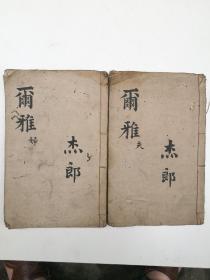 爾雅
夫
杰郎
爾雅
婦
杰郎